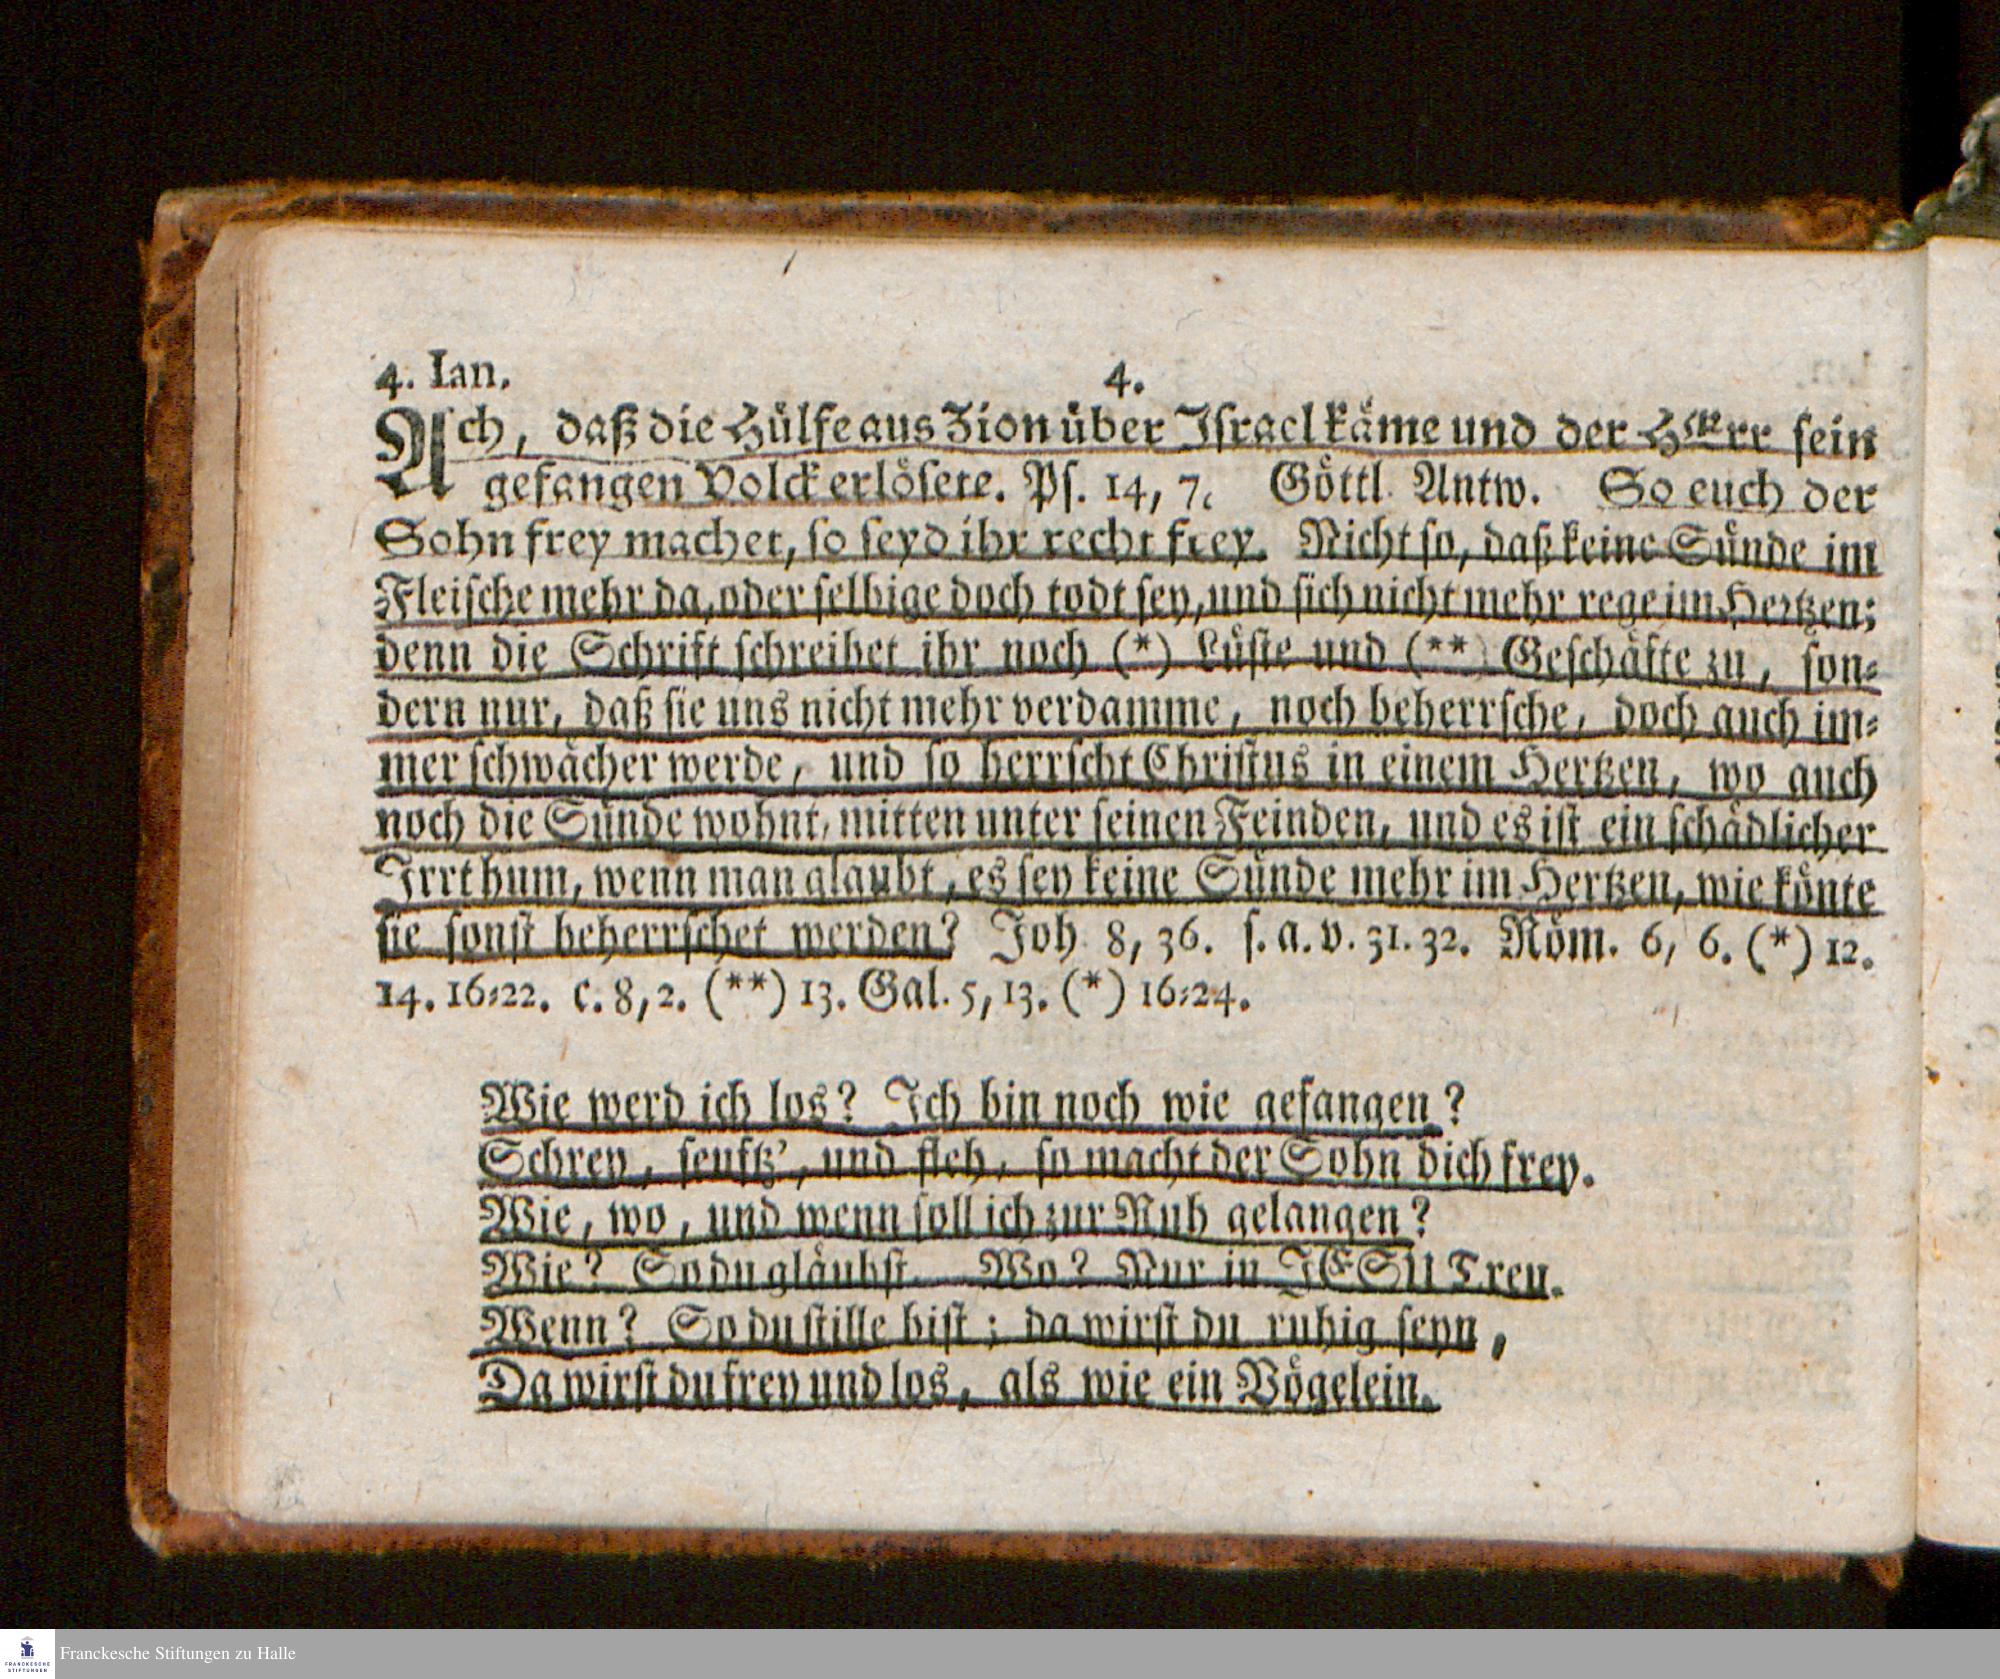 4. Ian.
4.
Ach, daß die Hülfe aus Zion über Iſrael käme und der HErr ſein
gefangen Volck erlöſete. Pſ. 14, 7. Göttl. Antw. So euch der
Sohn frey machet, ſo ſeyd ihr recht frey. Nicht ſo, daß keine Sünde im
Fleiſche mehr da, oder ſelbige doch todt ſey, und ſich nicht mehr rege im Hertzen;
denn die Schrift ſchreibet ihr noch (*) Lüſte und (**) Geſchäfte zu, ſon⸗
dern nur, daß ſie uns nicht mehr verdamme, noch beherrſche, doch auch im⸗
mer ſchwächer werde, und ſo herrſcht Chriſtus in einem Hertzen, wo auch
noch die Sünde wohnt, mitten unter ſeinen Feinden, und es iſt ein ſchädlicher
Irrthum, wenn man glaubt, es ſey keine Sünde mehr im Hertzen, wie könte
ſie ſonſt beherrſchet werden? Joh. 8, 36. ſ. a. v. 31. 32. Röm. 6, 6. (*) 12.
14. 16⸗22. c. 8, 2. (**) 13. Gal. 5, 13. (*) 16⸗24.
Wie werd ich los? Ich bin noch wie gefangen?
Schrey, ſeuftz', und fleh, ſo macht der Sohn dich frey.
Wie, wo, und wenn ſoll ich zur Ruh gelangen?
Wie? So du gläubſt. Wo? Nur in JESU Treu.
Wenn? So du ſtille biſt; da wirſt du ruhig ſeyn,
Da wirſt du frey und los, als wie ein Vögelein.
FRANCKESCHE
STIFTUNGEN
Franckesche Stiftungen zu Halle